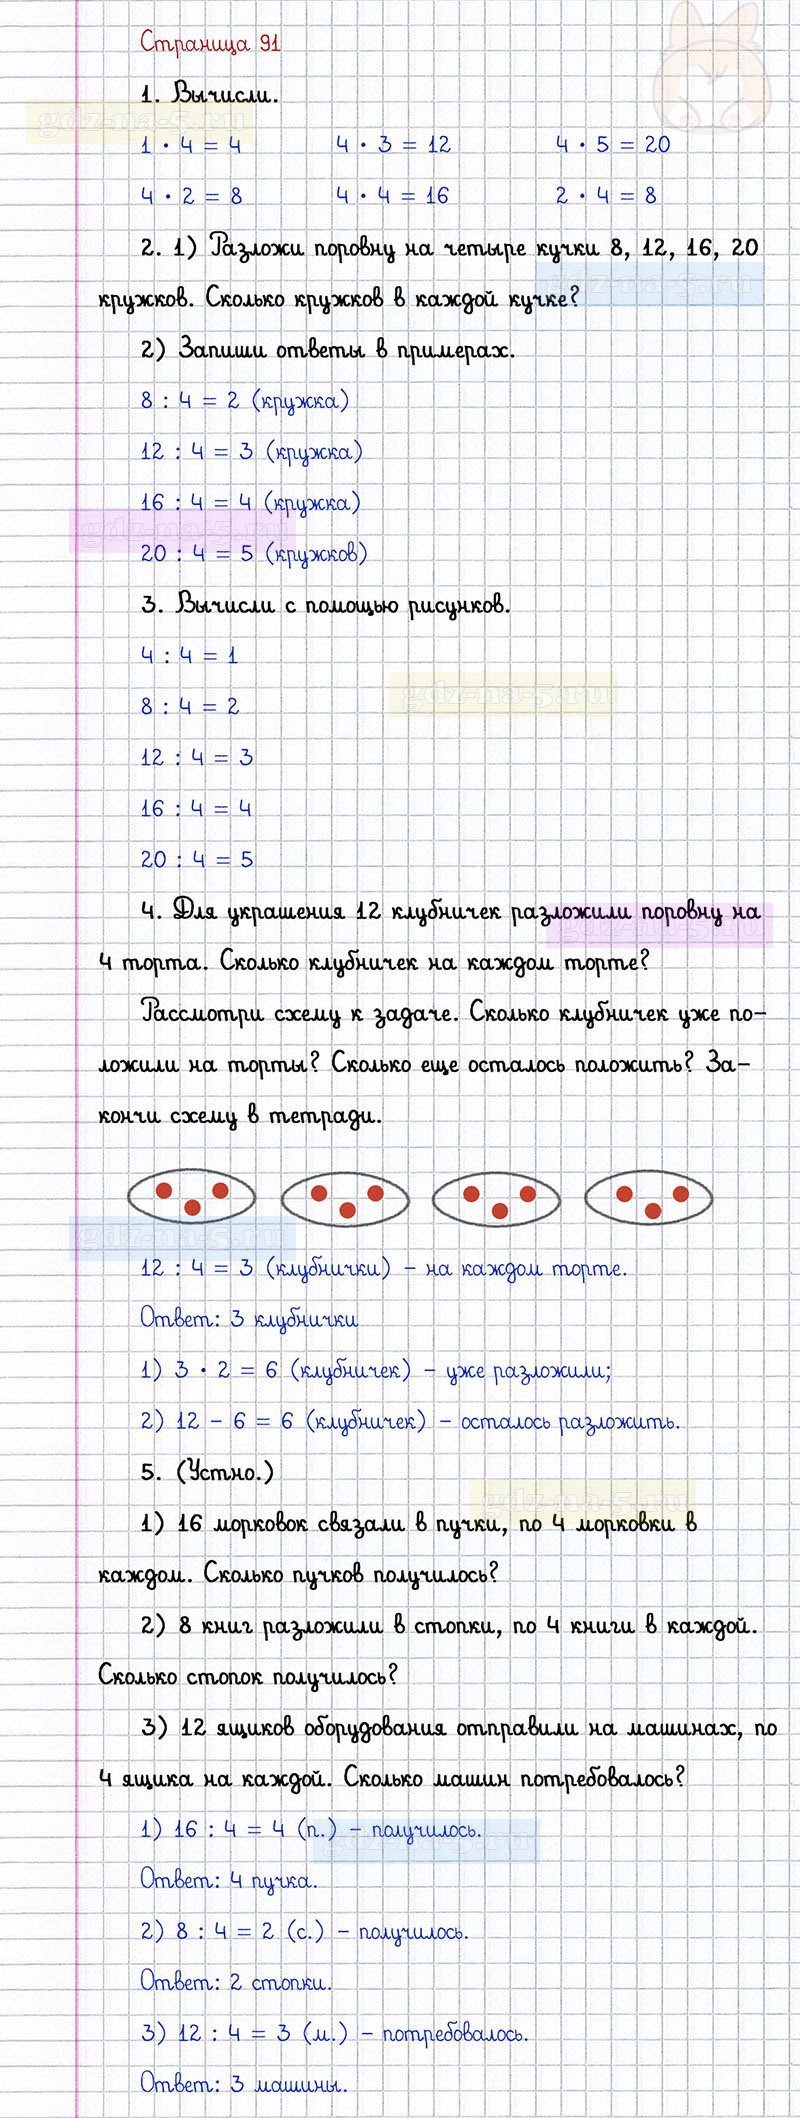 Страница 91
1. Вычисли.
gdz-na-5.ru
1 · 4 = 4 4 · 3 = 12 4 · 5 = 20
4 · 2 = 8 4 · 4 = 16 2 · 4 = 8
2. 1) Разложи поровну на четыре кучки 8, 12, 16, 20
gdz-na-5.ru
кружков. Сколько кружков в каждой кучке?
2) Запиши ответы в примерах.
8 : 4 = 2 (кружка)
12 : 4 = 3 (кружка)
16 : 4 = 4 (кружка)
gdz-na-5.ru
20 : 4 = 5 (кружков)
3. Вычисли с помощью рисунков.
4 : 4 = 1
gdz-na-5.ru
8 : 4 = 2
12 : 4 = 3
16 : 4 = 4
20 : 4 = 5
4. Для украшения 12 клубничек разложили поровну на
gdz-na-5.ru
4 торта. Сколько клубничек на каждом торте?
Рассмотри схему к задаче. Сколько клубничек уже по-
ложили на торты? Сколько еще осталось положить? За-
кончи схему в тетради.
gdz-na-5.ru
12 : 4 = 3 (клубнички) - на каждом торте.
Ответ: 3 клубнички
1) 3 · 2 = 6 (клубничек) - уже разложили;
2) 12 - 6 = 6 (клубничек) - осталось разложить.
5. (Устно.)
gdz-na-5.ru
1) 16 морковок связали в пучки, по 4 морковки в
каждом. Сколько пучков получилось?
2) 8 книг разложили в стопки, по 4 книги в каждой.
Сколько стопок получилось?
3) 12 ящиков оборудования отправили на машинах, по
4 ящика на каждой. Сколько машин потребовалось?
1) 16 : 4 = 4 (п.) - получилось.
gdz-na-5.ru
Ответ: 4 пучка.
2) 8 : 4 = 2 (с.) - получилось.
Ответ: 2 стопки.
3) 12 : 4 = 3 (м.) - потребовалось.
Ответ: 3 машины.